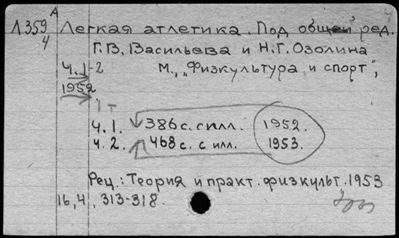 А
Л359 Легкая атлетика. Под общей ред.
4 Г.В. Васильева и Н.Г. Озолина
Ч.1-2 М., "Физкультура и спорт",
1952
1 т
ч. 1. 386 с. с илл. 1952.
ч. 2. 468 с. с илл. 1953.
Рец.: Теория и практ. физкульт. 1953
16, 4, 313-318.